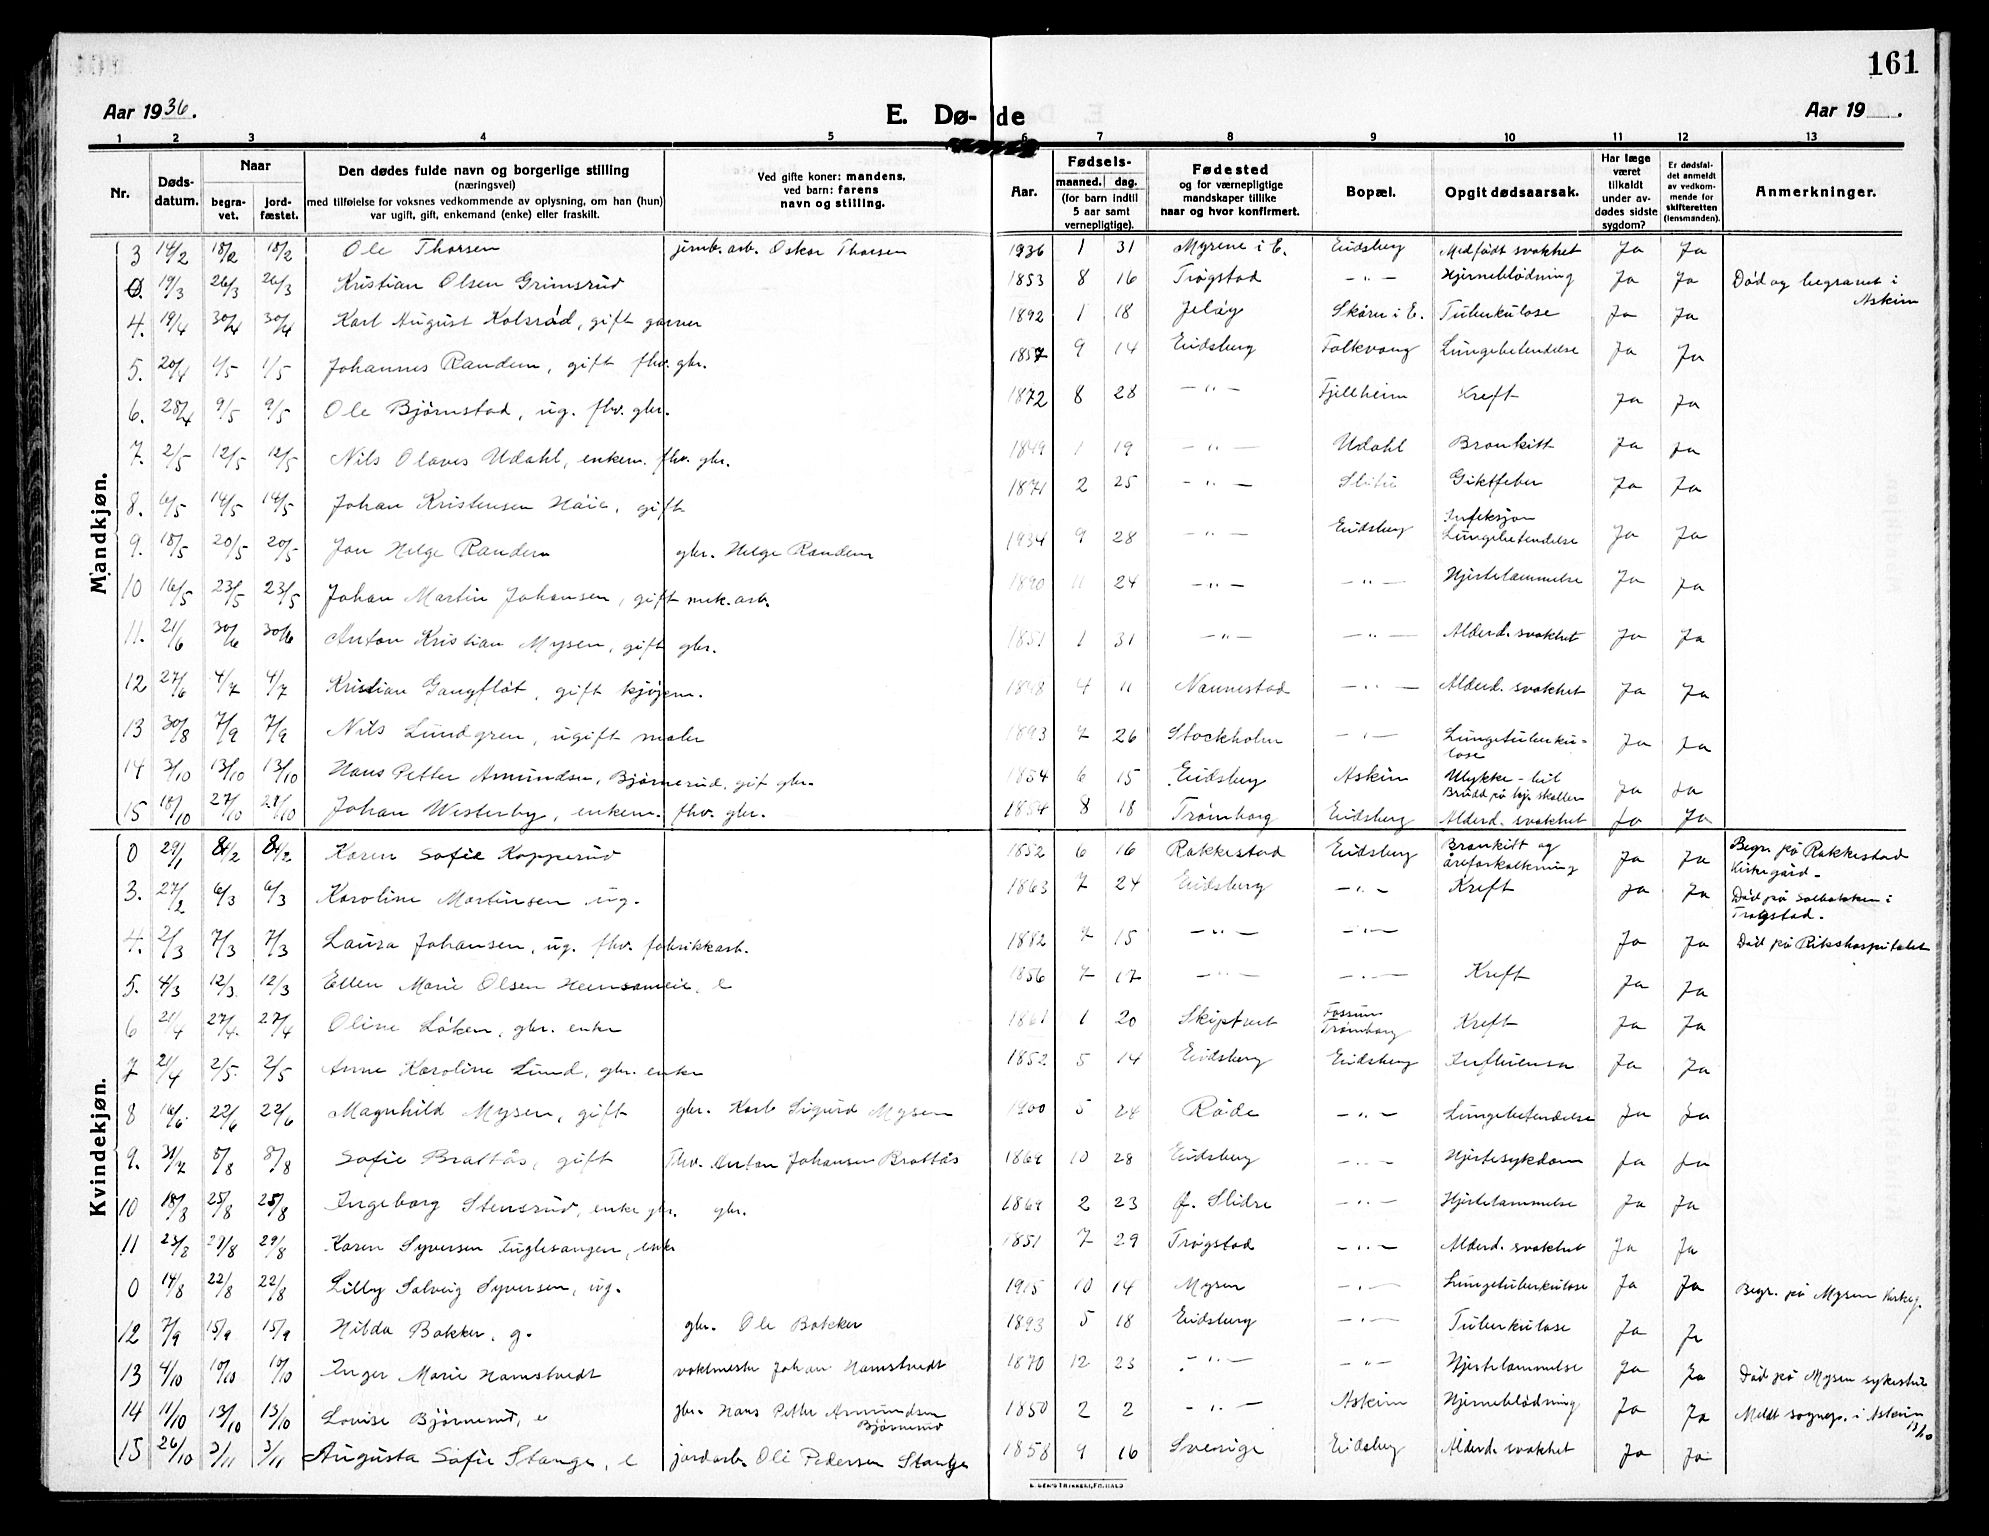 161
Aar 1936.
E. Dø-de
Aar 19 .
1 2 3 4 5 6 7 8 9 10 11 12 13
Nr. Døds-datum. Naar begra-vet. jord-fæstet. Den dødes fulde navn og borgerlige stilling (næringsvei) med tilføielse for voksnes vedkommende av oplysning, om han (hun) var ugift, gift, enkemand (enke) eller fraskilt. Ved gifte koner: mandens, ved barn: farens navn og stilling. Aar. Fødsels- maaned. dag. (for barn indtil 5 aar samt vernepligtige). Fødested og for værnepligtige mandskaper tillike naar og hvor konfirmert. Bopæl. Opgit dødsaarsak. Har læge været tilkaldt under av-dødes sidste sygdom? Er dødsfal-det anmeldt av vedkom-mende for skifteretten (lensmanden). Anmerkninger.
Mandkjøn.
3 14/2 18/2 18/2 Ole Thorsen jernb. arb. Oskar Thorsen 1936 1 31 Myrene i E. Eidsberg Medfødt svakhet Ja Ja
0. 19/3 26/3 26/3 Kristian Olsen Grimsrud 1853 8 16 Trøgstad -"- Hjerneblødning Ja Ja Død og begravet i Askim
4. 19/4 30/4 30/4 Karl August Kolsrød, gift garver 1892 1 18 Jeløy Skårn i E. Tuberkulose Ja Ja
5. 20/4 1/5 1/5 Johannes Randem, gift fhv. gbr. 1857 9 14 Eidsberg Folkvang Lungebetendelse Ja Ja
6. 28/4 9/5 9/5 Ole Bjørnstad, ug. fhv. gbr. 1872 8 28 -"- Fjellheim Kreft Ja Ja
7. 2/5 12/5 12/5 Nils Olaves Udahl, enkem. fhv. gbr. 1849 1 19 -"- Udahl Bronkitt Ja Ja
8. 6/5 14/5 14/5 Johan Kristensen Haie, gift 1871 2 25 -"- Slitu Giktfeber Ja Ja
9. 18/5 20/5 20/5 Jon Helge Randem gbr. Helge Randem 1934 9 28 -"- Eidsberg Infeksjon Lungebetendelse Ja Ja
10 16/5 23/5 23/5 Johan Martin Johansen, gift mek. arb. 1890 11 24 -"- -"- Hjertelammelse Ja Ja
11. 21/6 30/6 30/6 Anton Kristian Mysen, gift gbr. 1851 1 31 -"- -"- Alderd. svakhet Ja Ja
12 27/6 4/7 4/7 Kristian Gangfløt, gift kjøpm. 1848 4 11 Nannestad -"- Alderd. svakhet Ja Ja
13 30/8 7/9 7/9 Nils Lundgren, ugift maler 1893 7 26 Stockholm -"- Lungetuberku-lose Ja Ja
14 3/10 13/10 13/10 Hans Petter Amundsen, Bjørnerud, gift gbr. 1854 6 15 Eidsberg Askim Ulykke - bil Brudd på hj. skallen Ja Ja
15 18/10 27/10 27/10 Johan Westerby, enkem. fhv. gbr. 1854 8 18 Trømborg Eidsberg Alderd. svakhet Ja Ja
Kvindekjøn.
0 29/1 84/2 84/2 Karen Sofie Kopperud 1852 6 16 Rakkestad Eidsberg Bronkitt og åreforkalkning Ja Ja Begr. på Rakkestad Kirkegård.
3. 27/2 6/3 6/3 Karoline Martinsen ug. 1863 7 24 Eidsberg -"- Kreft Ja Ja Død på Solbakken i Trøgstad.
4. 2/3 7/3 7/3 Laura Johansen, ug. fhv. fabrikkarb. 1882 7 15 -"- -"- Ja Ja Død på Rikshospitalet
5. 4/3 12/3 12/3 Ellen Marie Olsen Heensameie, e 1856 7 17 -"- -"- Kreft Ja Ja
6 21/4 27/4 27/4 Oline Løken, gbr. enke 1861 1 20 Skiptvet Fossum Trømborg Kreft Ja Ja
7 21/4 2/5 2/5 Anne Karoline Lund, gbr. enke 1852 5 14 Eidsberg Eidsberg Influensa Ja Ja
8 16/6 22/6 22/6 Magnhild Mysen, gift gbr. Karl Sigurd Mysen 1900 5 24 Råde -"- Lungebetendelse Ja Ja
9. 31/7 8/8 8/8 Sofie Brattås, gift Fhv. Anton Johansen Brattås 1864 10 28 Eidsberg -"- Hjertesykdom Ja Ja
10 18/8 25/8 25/8 Ingeborg Stensrud, enke gbr. gbr. 1864 2 23 Ø. Slidre -"- Hjertelammelse Ja Ja
11 23/8 29/8 29/8 Karen Syversen Fuglesangen, enke 1851 7 29 Trøgstad -"- Alderd. svakhet Ja Ja
0 14/8 22/8 22/8 Lilly Solveig Syversen, ug. 1915 10 14 Mysen -"- Lungetuberkulose Ja Ja Begr. på Mysen Kirkeg.
12 7/9 15/9 15/9 Hilda Bakker, g. gbr. Ole Bakker 1893 5 18 Eidsberg -"- Tuberkulose Ja Ja
13 4/10 10/10 10/10 Inger Marie Hamstvedt vaktmester Johan Hamstvedt 1870 12 23 -"- -"- Hjertelammelse Ja Ja Død på Mysen sykestue
14 11/10 13/10 13/10 Louise Bjørnerud, e gbr. Hans Petter Amundsen Bjørnerud 1850 2 2 -"- Askim Hjerneblødning Ja Ja Meldt sognepr. i Askim 13/10
15 26/10 3/11 3/11 Augusta Sofie Stange, e jordarb. Ole Pedersen Stange 1858 9 16 Sverige Eidsberg Alderd. svakhet Ja Ja